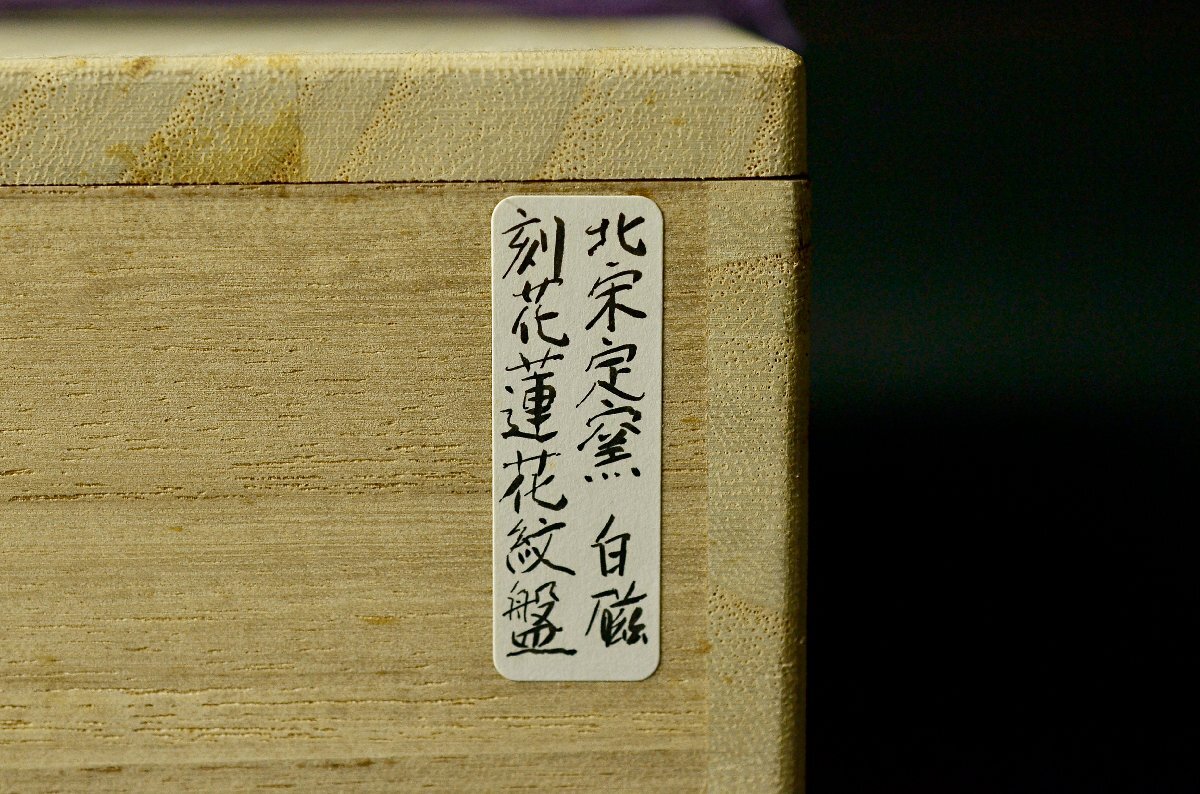 北宋定窯 白磁
刻花蓮花紋盤